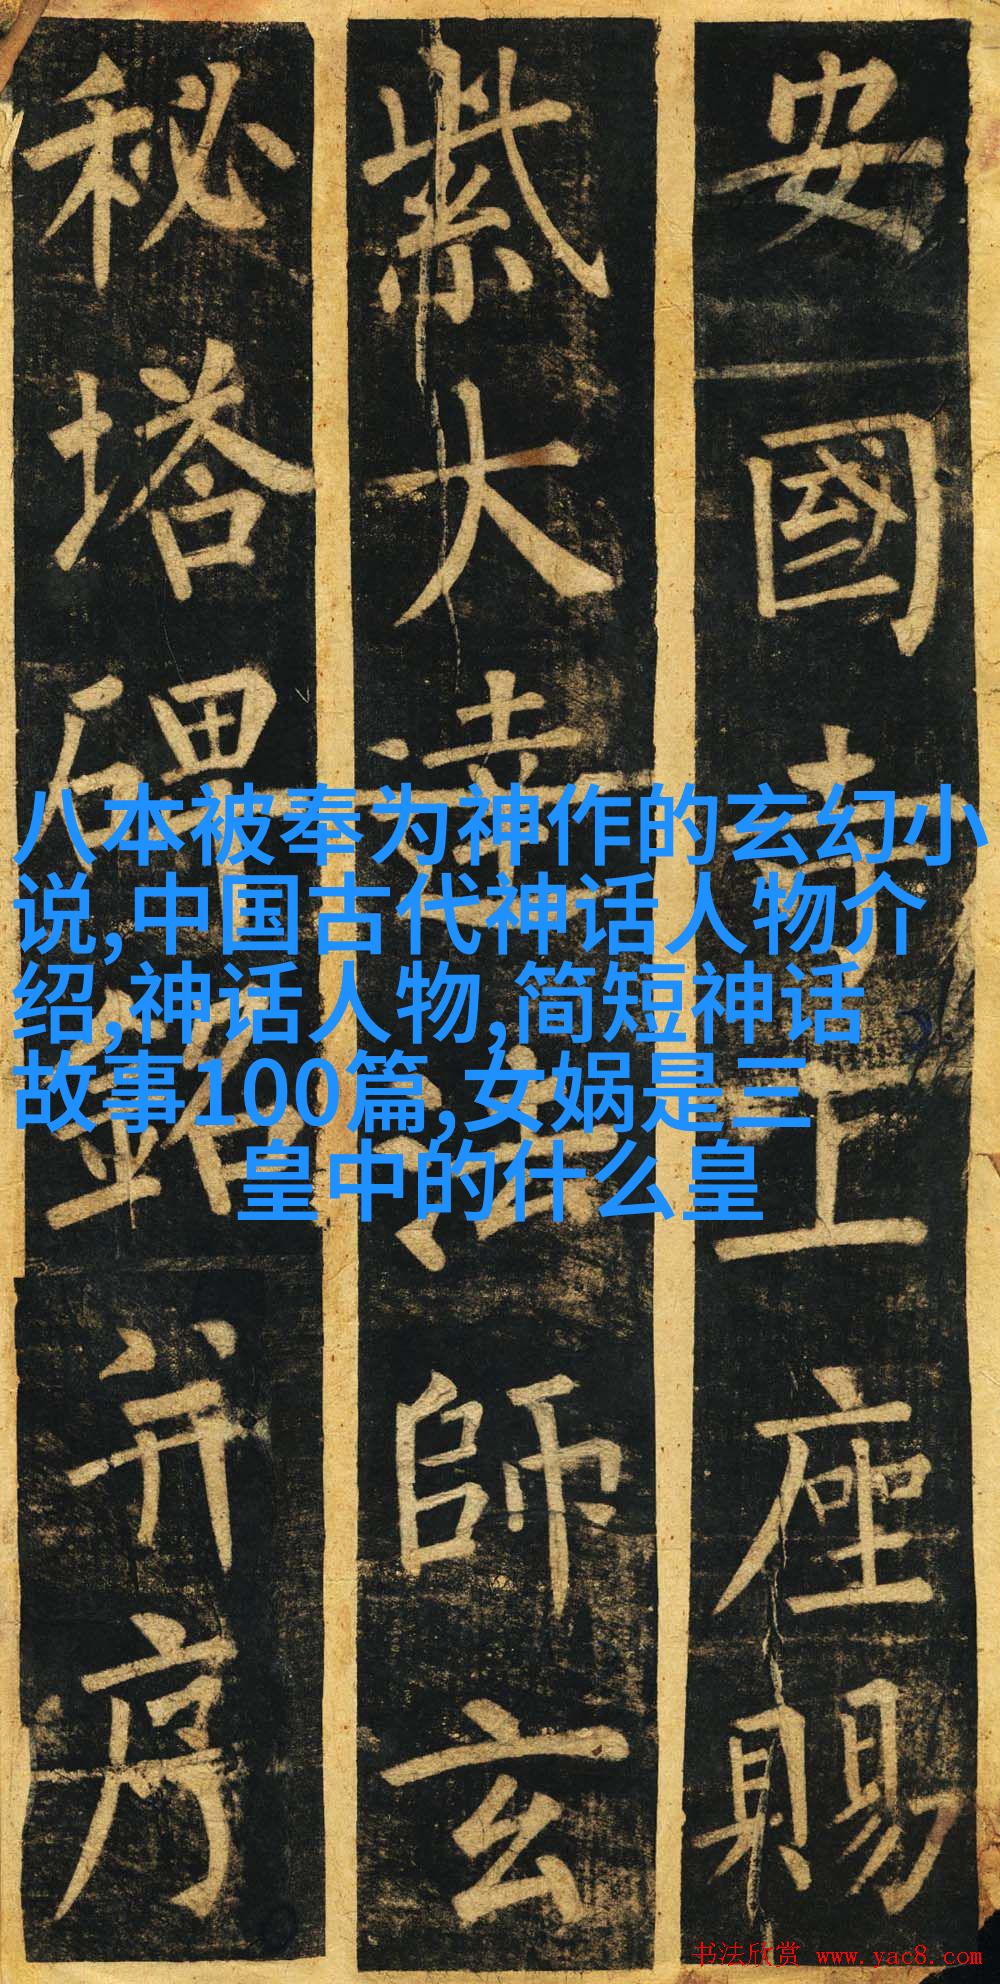 安國寺上座賜
紫大達法師玄
秘塔碑銘并序
八本被奉为神作的玄幻小
说,中国古代神话人物介
绍,神话人物,简短神话
故事100篇,女娲是三
皇中的什么皇
书法欣赏 www.yac8.com